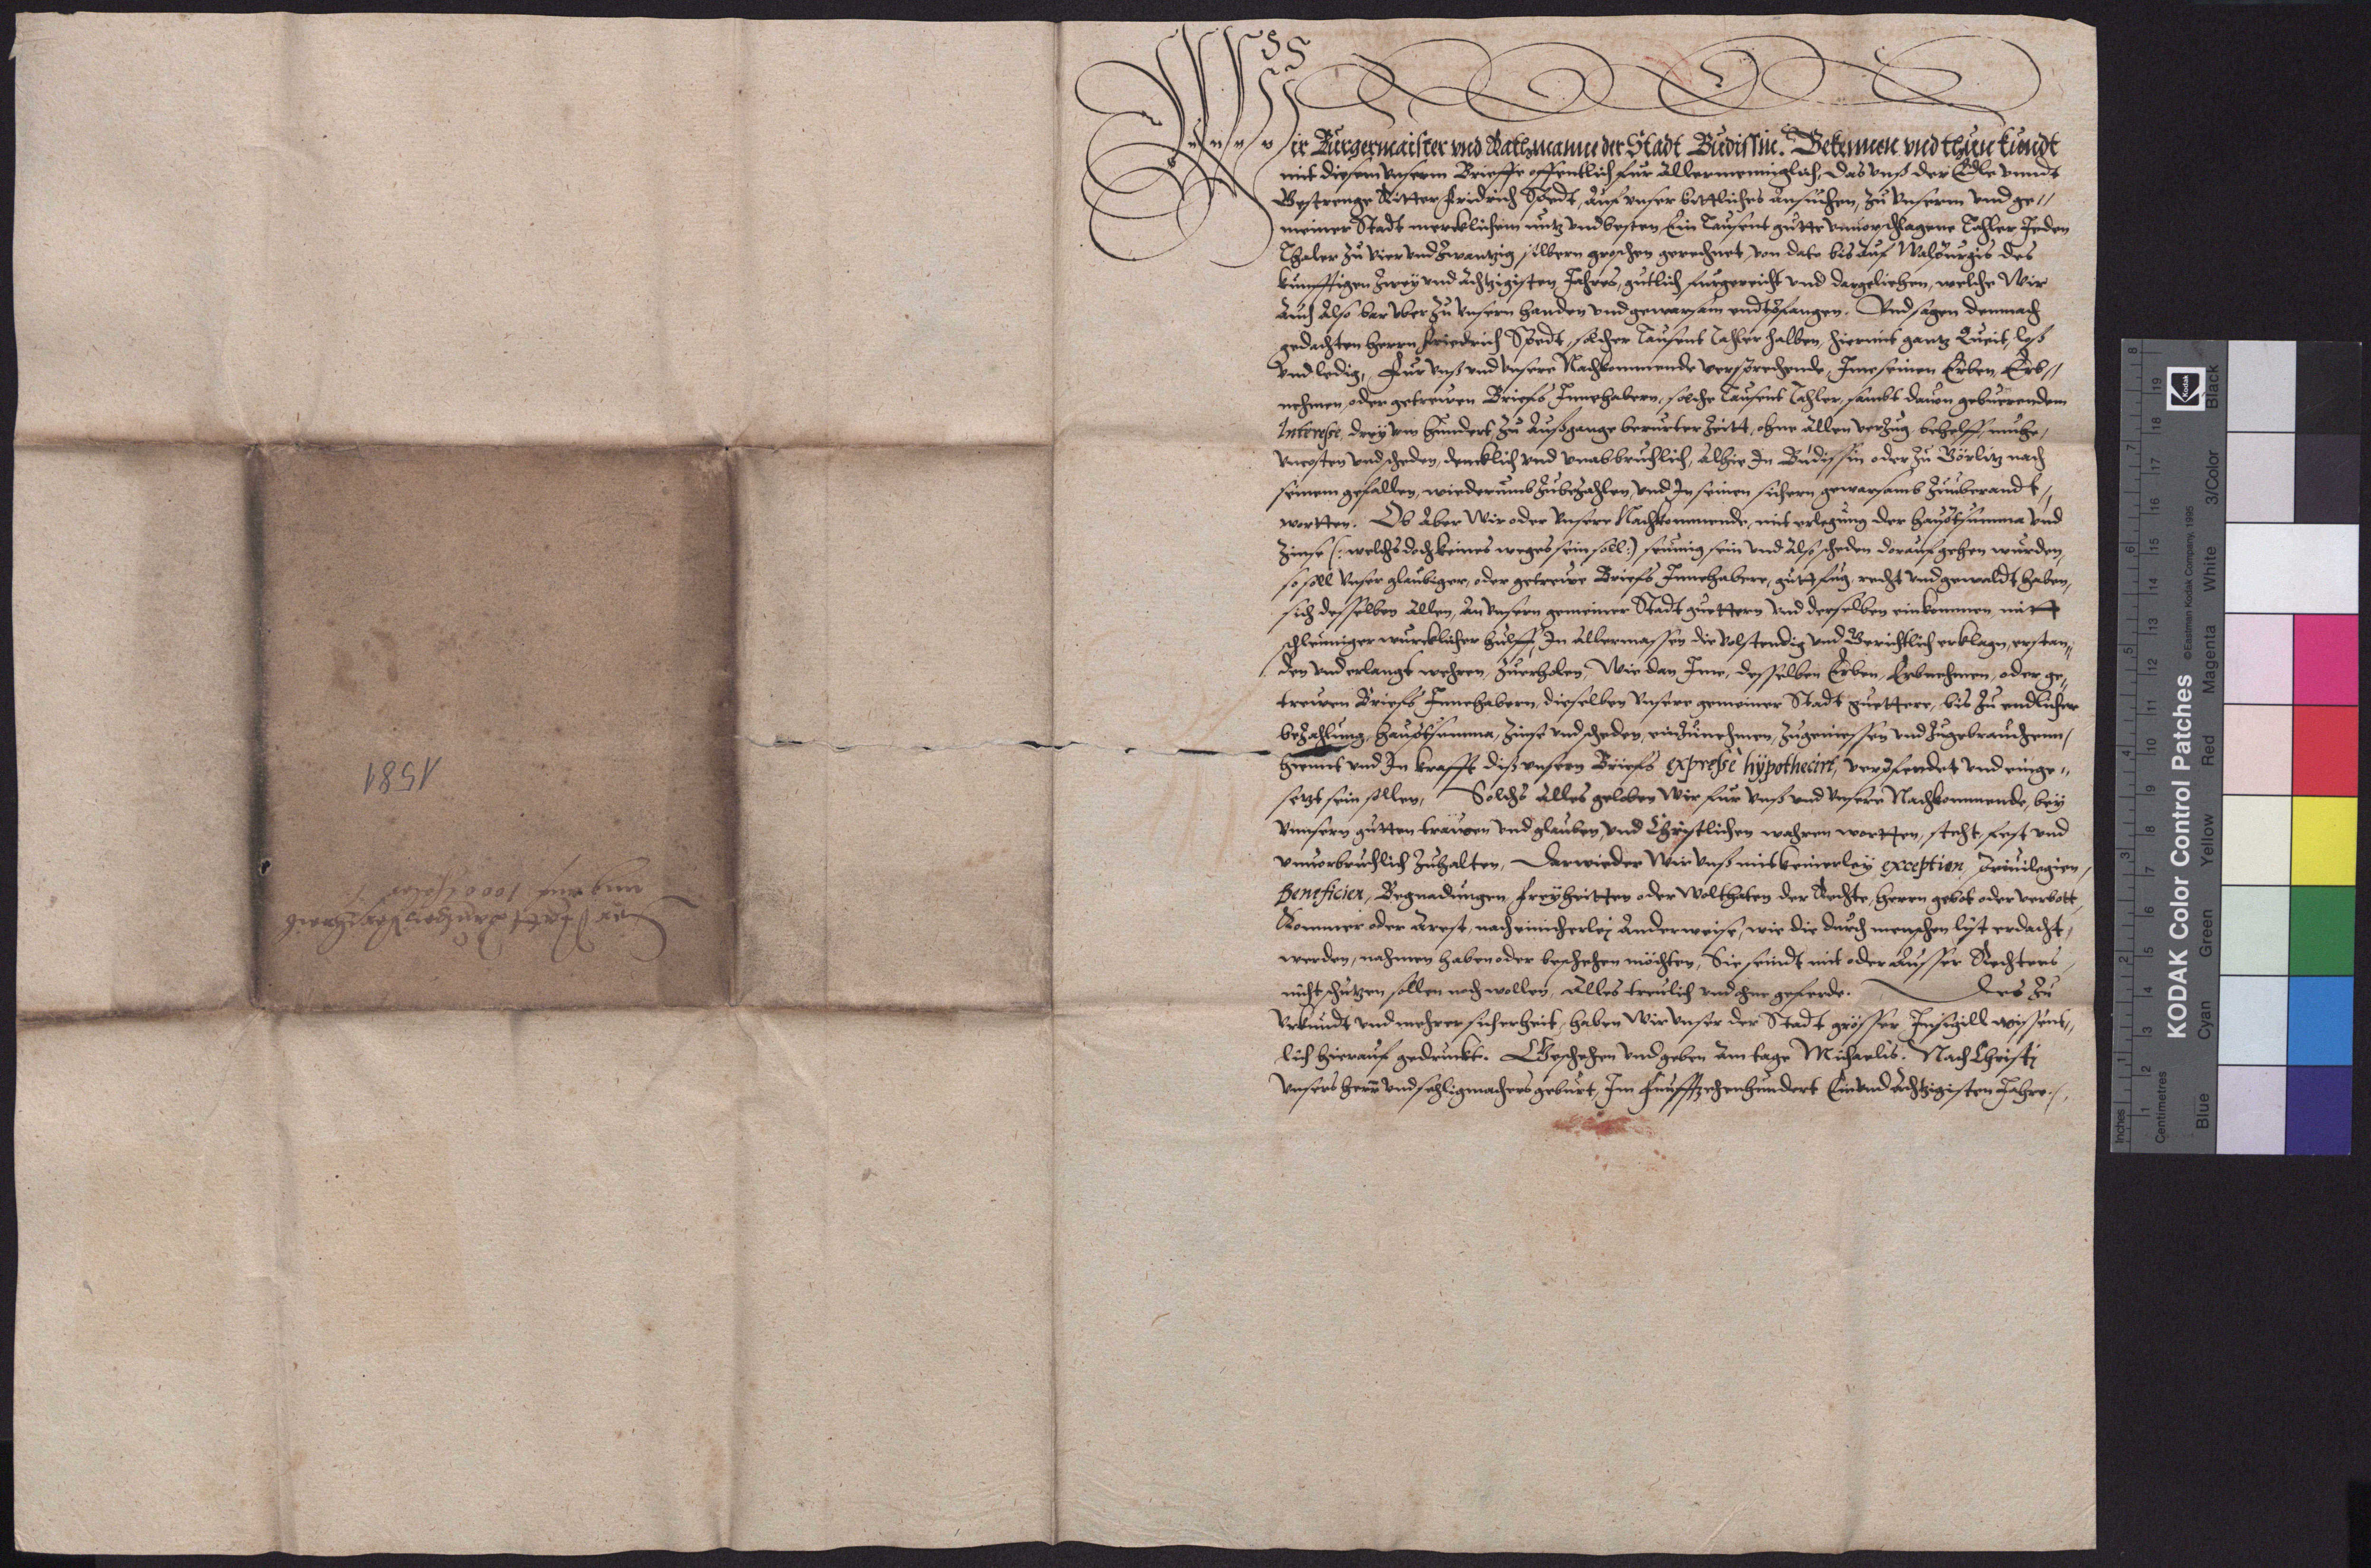 Wir Burgermaister vnd Rathmanne der Stadt Budissin. Bekennen vnd thuen kundt
mit diesem vnserm Brieffe offentlich fur Allermenniglich, Das vnß der Edle vnndt
Gestrenge Ritter Fridrich Spedt, Auf vnser bittliches ansuchen, zu vnserm vnd ge//
meiner Stadt mercklichem nutz vnd besten Ein Tausent gutte vnuorschlagene Tahler Jeden
Thaler zu vier vnd zwantzig silbern groschen gerechnet, von dato bis auf Walpurgis des
kunfftigen zwey vnd achtzigisten Jahres, gutlich furgereicht vnd dargeliehen, welche Wir
Auch Also bar vber zu vnsern handen vnd gewarsam endtpfangen. Vnd sagen demnach
gedachten herrn Friedrich Spedt, solcher Tausent Tahler halben, hiermit gantz Queit, loß
vnd ledig, Fur vnß vnd vnsere Nachkommende versprechende, Jme seinen Erben, Erb//
nehmen, oder getreuen Briefs Jnnehabern, solche Tausent Tahler, sambt dauon geburendem
Interesse, drey vom hundert, zu Außgange berurter Zeitt, ohne Allen verzug, behelff, muhe,
vncosten vnd scheden, dencklich vnd vnabbruchlich, Alhie Jn Budissin oder zu Görlitz nach
seinem gefallen, wiederumb zubezahlen, vnd Jn seinen sichern gewarsamb zuuberandt//
wortten. Ob Aber Wir oder Vnsere Nachkommende, mit erlegung der hauptsumma vnd
Zinse (: welchs doch keines weges sein soll:) seumig sein vnd Also scheden dorauf gehen wurden,
so soll vnser glaubiger, oder getreuer Briefs Jnnehabere, gutt fug, recht vnd gewaldt haben,
sich desselben Allen, An vnsern gemeiner Stadt guettern vnd derselben einkommen mitt
schleuniger wurcklicher hulff, Jn Allermassen die volstendig vnd Gerichtlich erklagn, erstan//
den vnd erlangt wehren, zuerholen, Wie dan Jme, desselben Erben, Erbnehmen, oder ge//
treuen Briefs Jnnehabern, dieselben vnsere gemeiner Stadt guettere, bis zu endlicher
bezahlung, hauptsumma, Zinse vnd scheden, einzunehmen, zugeniessen vnd zugebrauchenn,
hiemit vnd Jn krafft diß vnsern Briefs expresse hypothecirt, verpfendet vnd einge//
setzt sein sollen, Solchs Alles geloben Wir fur vnß vnd vnsere Nachkommende, bey
vnnsern gutten trauen vnd glauben, vnd Christlichen wahren wortten, steht, fest vnd
vnuorbruchlich zuhalten, Darwieder Wir vnß mit keinerley exception priuilegien,
Beneficien, Begnadungen, freyheitten oder Wolthaten der Rechte, herren gebot oder verbott,
Kommer oder Arest, noch einicherley Anderweise, wie die durch menschen list erdacht,
werden, nahmen haben oder beschehen möchten, Sie seindt mit oder Ausser Rechtens,
nicht schutzen sollen noch wollen, Alles treulich vnd ohne geferde. Des zu
vrkundt vnd mehrer sicherheit, haben Wir vnser der Stadt grösser Jnsigill wissent//
lich hierauf gedruckt. Geschehen vnd geben Am tage Michaelis. Nach Christi
vnsers herr vnd sehligmachers geburt, Jm Funffzehenhundert Ein vnd achtzigisten Jahre.
1581
auf 1000 thaler
KODAK Color Control Patches
©Eastman Kodak Company, 1995
Kodak
Inches
Centimetres
Blue Cyan Green Yellow Red Magenta White 3/Color Black